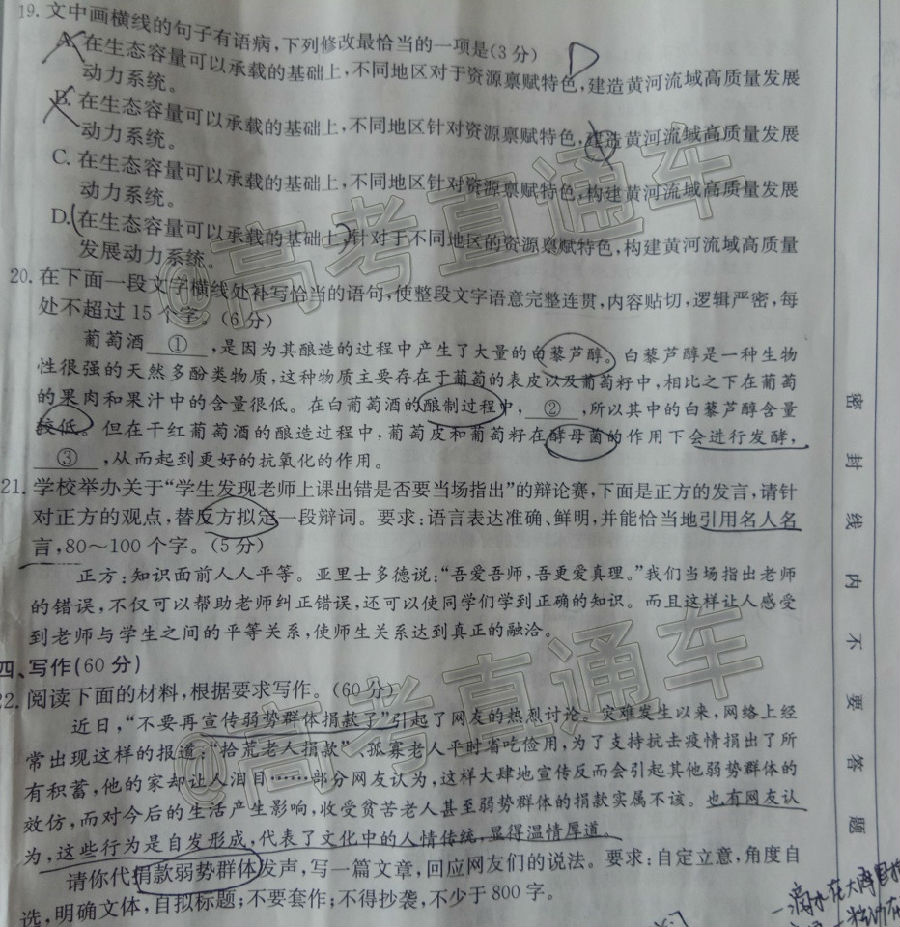 19.文中画横线的句子有语病,下列修改最恰当的一项是(3分) D
A.在生态容量可以承载的基础上,不同地区对于资源禀赋特色,建造黄河流域高质量发展
动力系统。
B.在生态容量可以承载的基础上,不同地区针对资源禀赋特色,建造黄河流域高质量发展
动力系统。
C.在生态容量可以承载的基础上,不同地区针对资源禀赋特色,构建黄河流域高质量发展
动力系统。
D.在生态容量可以承载的基础上,针对于不同地区的资源禀赋特色,构建黄河流域高质量
发展动力系统。
20.在下面一段文字横线处补写恰当的语句,使整段文字语意完整连贯,内容贴切,逻辑严密,每
处不超过15个字。(6分)
葡萄酒 ① ,是因为其酿造的过程中产生了大量的白藜芦醇。白藜芦醇是一种生物
性很强的天然多酚类物质,这种物质主要存在于葡萄的表皮以及葡萄籽中,相比之下在葡萄
的果肉和果汁中的含量很低。在白葡萄酒的酿制过程中, ② ,所以其中的白藜芦醇含量
较低。但在干红葡萄酒的酿造过程中,葡萄皮和葡萄籽在酵母菌的作用下会进行发酵,
③ ,从而起到更好的抗氧化的作用。
21.学校举办关于“学生发现老师上课出错是否要当场指出”的辩论赛,下面是正方的发言,请针
对正方的观点,替反方拟定一段辩词。要求:语言表达准确、鲜明,并能恰当地引用名人名
言,80~100个字。(5分)
正方:知识面前人人平等。亚里士多德说:“吾爱吾师,吾更爱真理。”我们当场指出老师
的错误,不仅可以帮助老师纠正错误,还可以使同学们学到正确的知识。而且这样让人感受
到老师与学生之间的平等关系,使师生关系达到真正的融洽。
四、写作(60分)
22.阅读下面的材料,根据要求写作。(60分)
近日,“不要再宣传弱势群体捐款了”引起了网友的热烈讨论。灾难发生以来,网络上经
常出现这样的报道:“拾荒老人捐款”、孤寡老人平时省吃俭用,为了支持抗击疫情捐出了所
有积蓄,他的家却让人泪目……部分网友认为,这样大肆地宣传反而会引起其他弱势群体的
效仿,而对今后的生活产生影响,收受贫苦老人甚至弱势群体的捐款实属不该。也有网友认
为,这些行为是自发形成,代表了文化中的人情传统,显得温情厚道。
请你代捐款弱势群体发声,写一篇文章,回应网友们的说法。要求:自定立意,角度自
选,明确文体,自拟标题;不要套作;不得抄袭,不少于800字。
密封线内不要答题
@高考直通车
@高考直通车